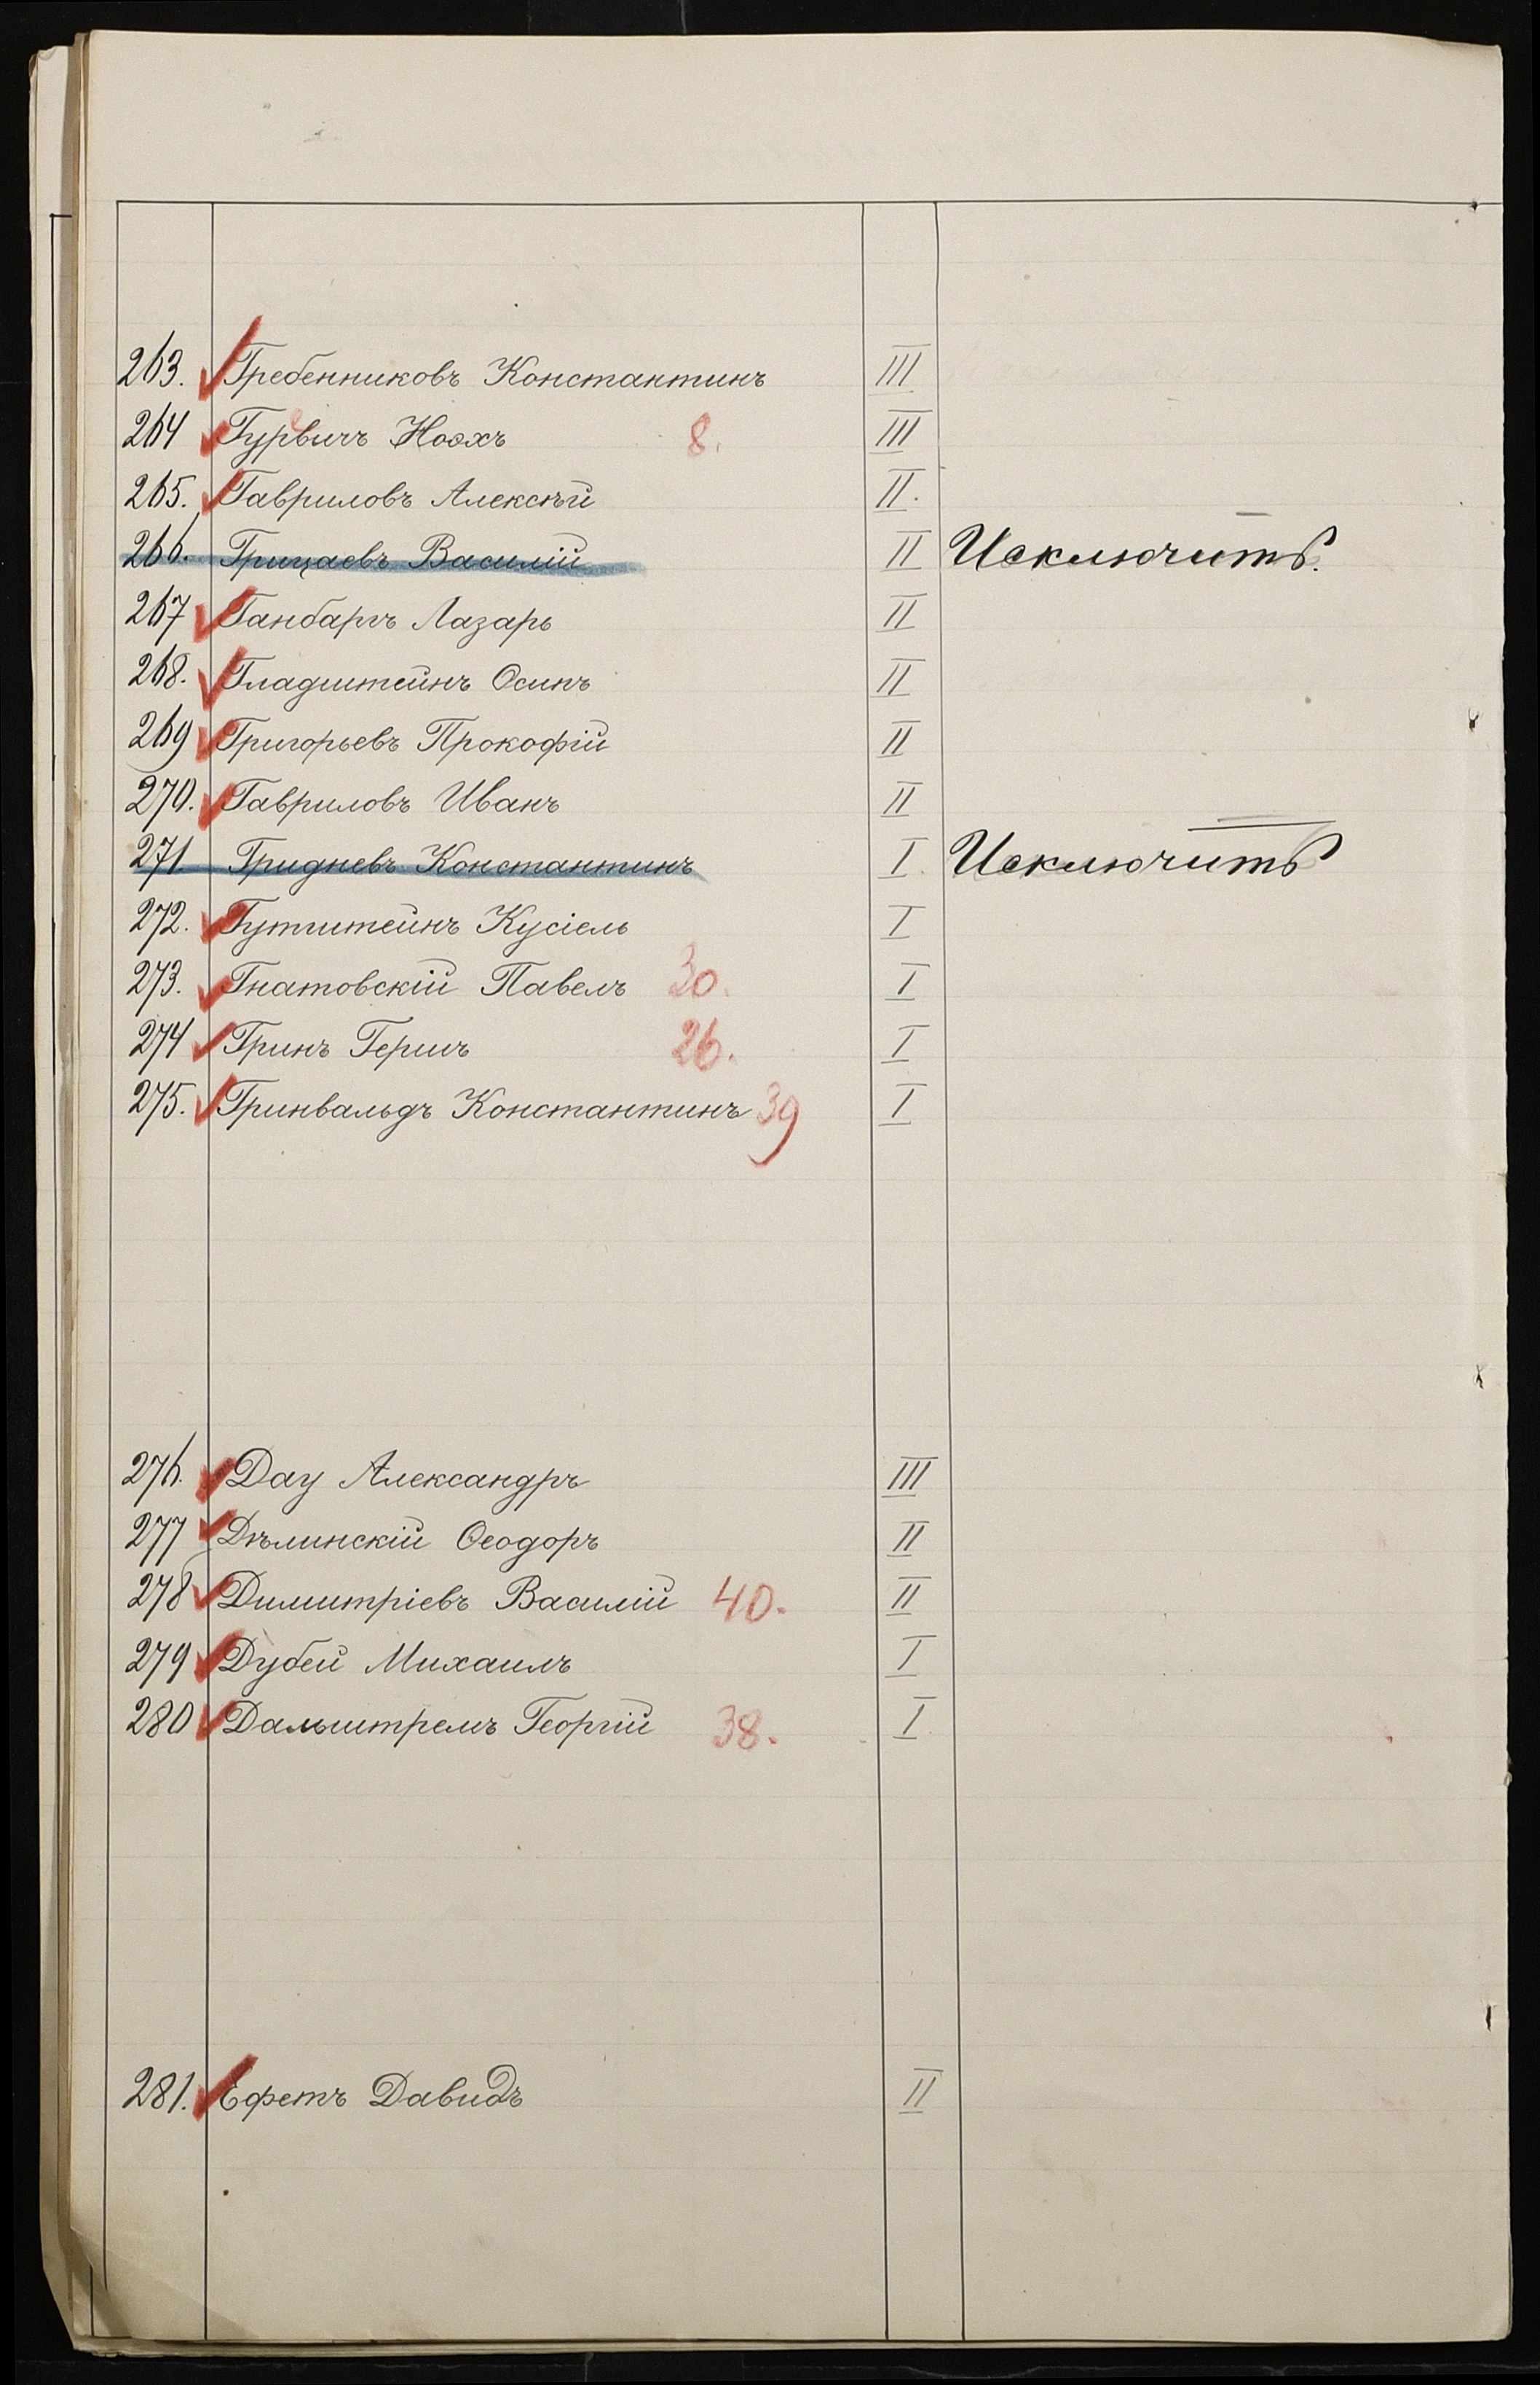 263. Гребенниковъ Константинъ III
264 Гурвичъ Ноахъ 8. III
265. Гавриловъ Алексѣй II.
266. Грицаевъ Василій II Исключить.
267 Ганбаргъ Лазарь II
268. Гладштейнъ Осипъ II
269 Григорьевъ Прокофій II
270. Гавриловъ Иванъ II
271. Гридневъ Константинъ I Исключить
272. Гутштейнъ Кусіель I
273. Гнатовскій Павелъ 30. I
274 Гринъ Гершъ 26. I
275. Гринвальдъ Константинъ 39 I
276. Дау Александръ III
277 Дѣлинскій Ѳеодоръ II
278 Димитріевъ Василій 40. II
279 Дубей Михаилъ I
280 Дальштремъ Георгій 38. I
281. Ефетъ Давидъ II